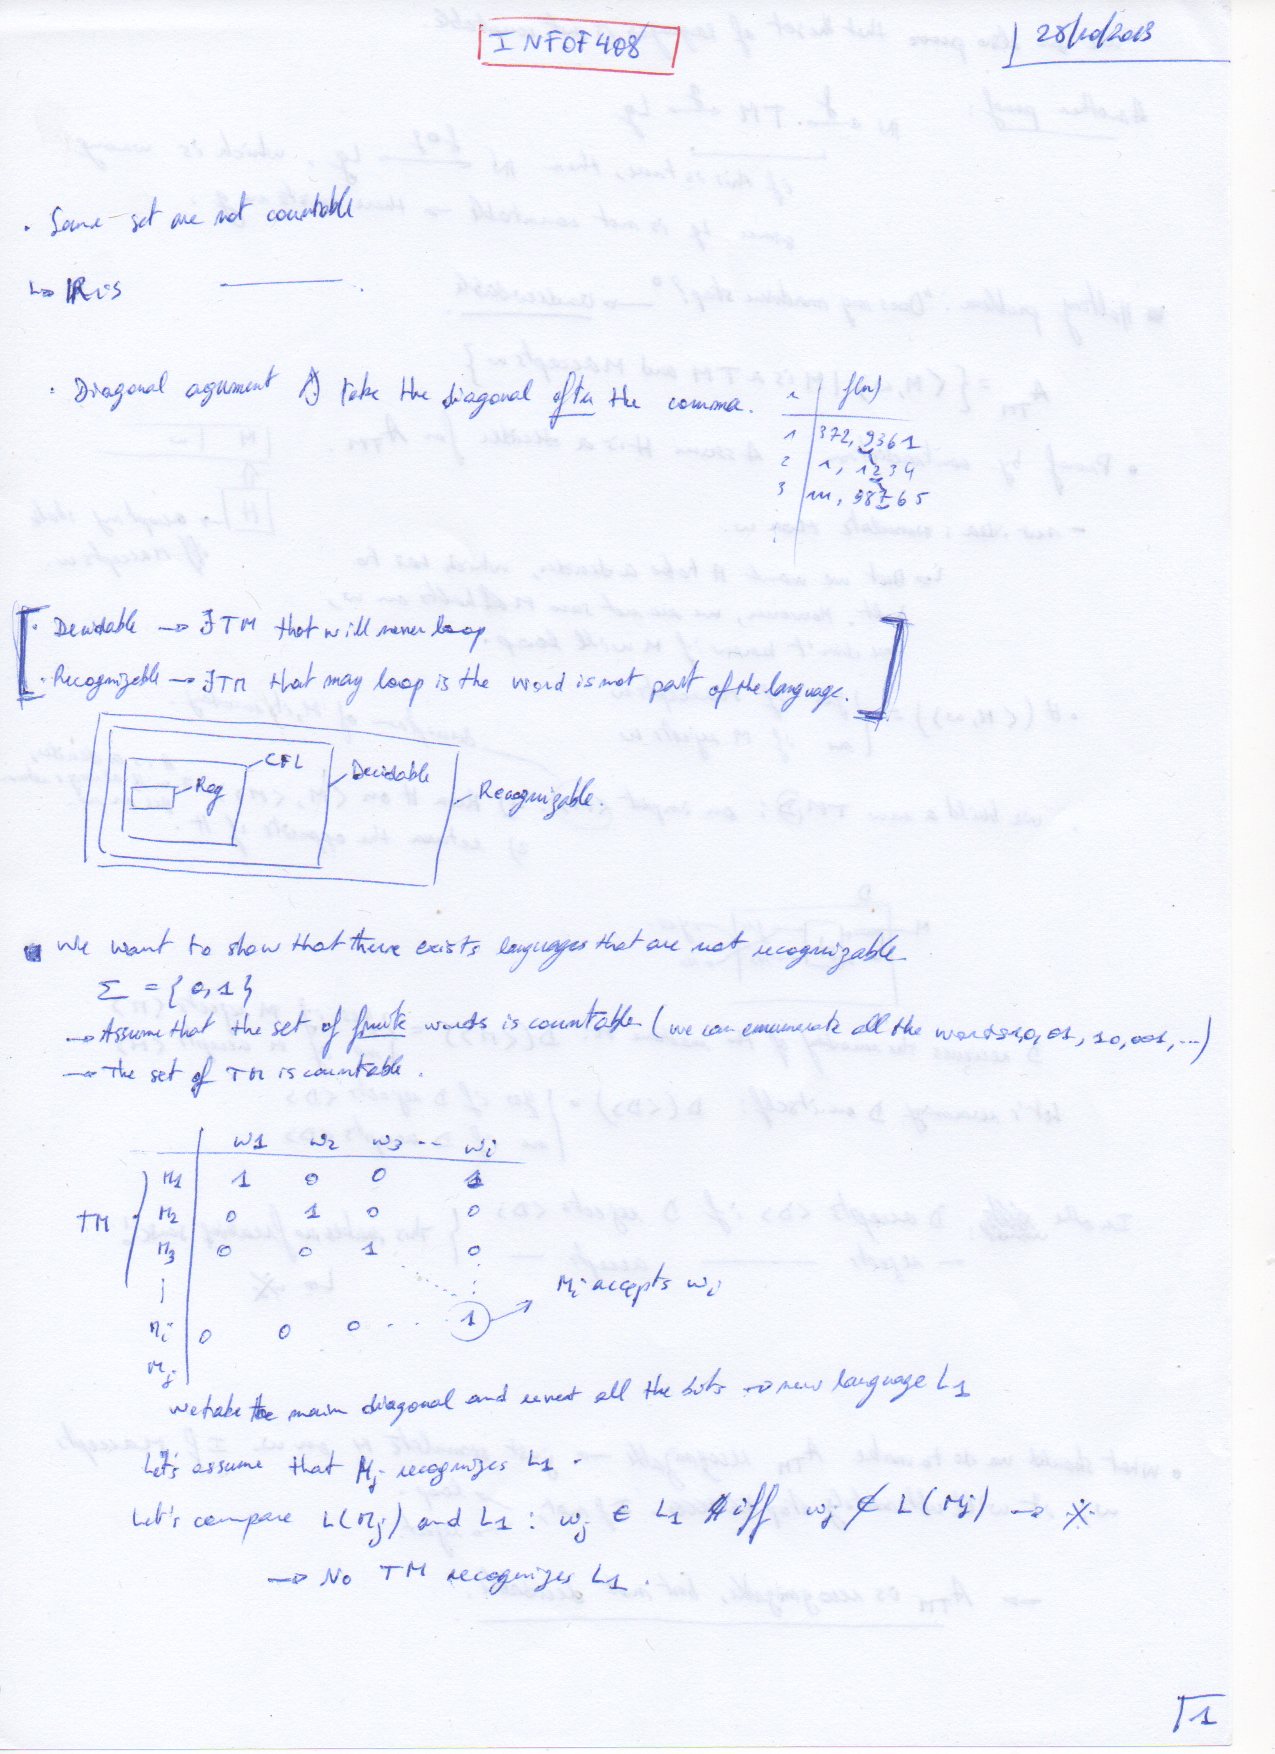 INFOF408
28/10/2013
· Some set are not countable
↳ ℝ is ———— .
· Diagonal argument take the diagonal after the comma.
n | f(n)
1 | 372, 9361
2 | 1, 1234
3 | , 98765
· Decidable → ∃TM that will never loop
· Recognizable → ∃TM that may loop is the word is not part of the language.
Reg
CFL
Decidable
Recognizable.
We want to show that there exists languages that are not recognizable
Σ = {0,1}
→ Assume that the set of finite words is countable (we can enumerate all the words 0, 01, 10, 001, ...)
→ The set of TM is countable.
w1 w2 w3 ... wi
M1 1 0 0 1
TM M2 0 1 0 0
M3 0 0 1 0
Mi 0 0 0 . . . 1 → Mi accepts wi
Mj
We take the main diagonal and revert all the bits → new language L1
Let's assume that Mj recognizes L1.
Let's compare L(Mj) and L1 : wj ∈ L1 iff wj ∉ L(Mj) → ※
→ No TM recognizes L1.
1